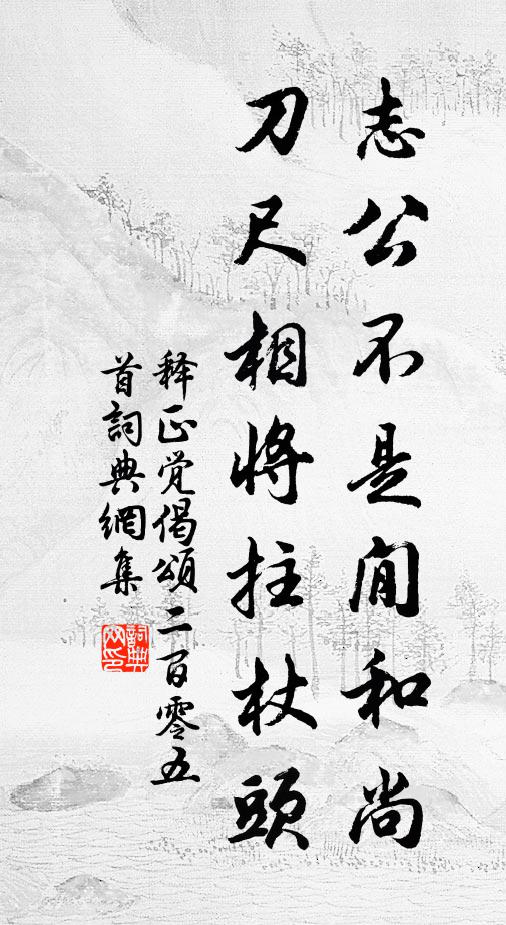 志公不是閒和尚
刀尺相將拄杖頭
释正觉偈頌二百零五
首詞典網集
詞典